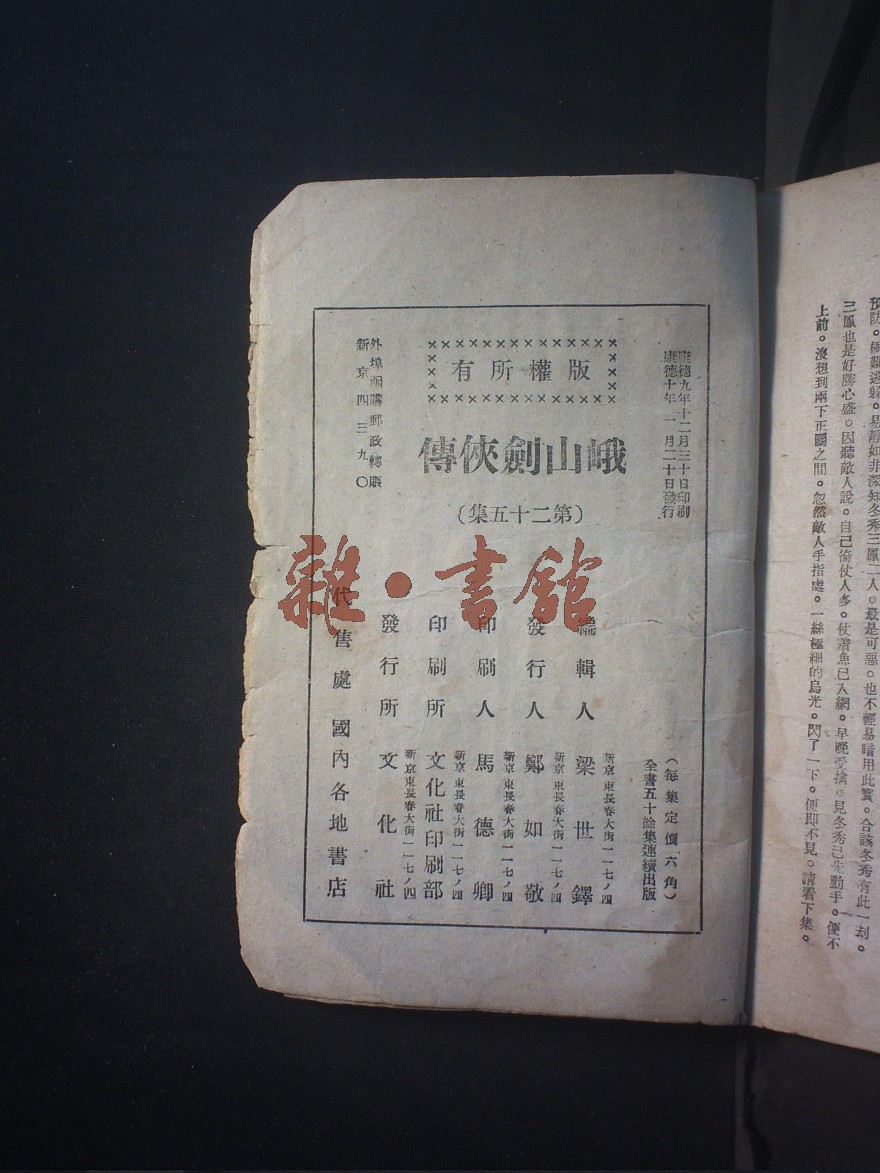 預防。極難逃躲。易靜如非深知冬秀三鳳二人。最是可惡。也不輕易暗用此寶。合該冬秀有此一刦。
三鳳也是好勝心盛。因聽敵人說。自己倚仗人多。仗着魚已入網。早晚受擒。見冬秀已先動手。便不
上前。沒想到兩下正鬭之間。忽然敵人手指處。一絲極細的烏光。閃了一下。便即不見。請看下集。
康德九年十二月三十日印刷
康德十年一月二十日發行
版權所有
峨山劍俠傳
(第二十五集)
(每集定價六角)
全書五十餘集連續出版
新京東長春大街一一七ノ四
編輯人 梁世鐸
新京東長春大街一一七ノ四
發行人 鄭如敬
新京東長春大街一一七ノ四
印刷人 馬德卿
新京東長春大街一一七ノ四
印刷所 文化社印刷部
新京東長春大街一一七ノ四
發行所 文化社
外埠函購郵政轉賬
新京四三九〇
代售處 國內各地書店
雜·書館